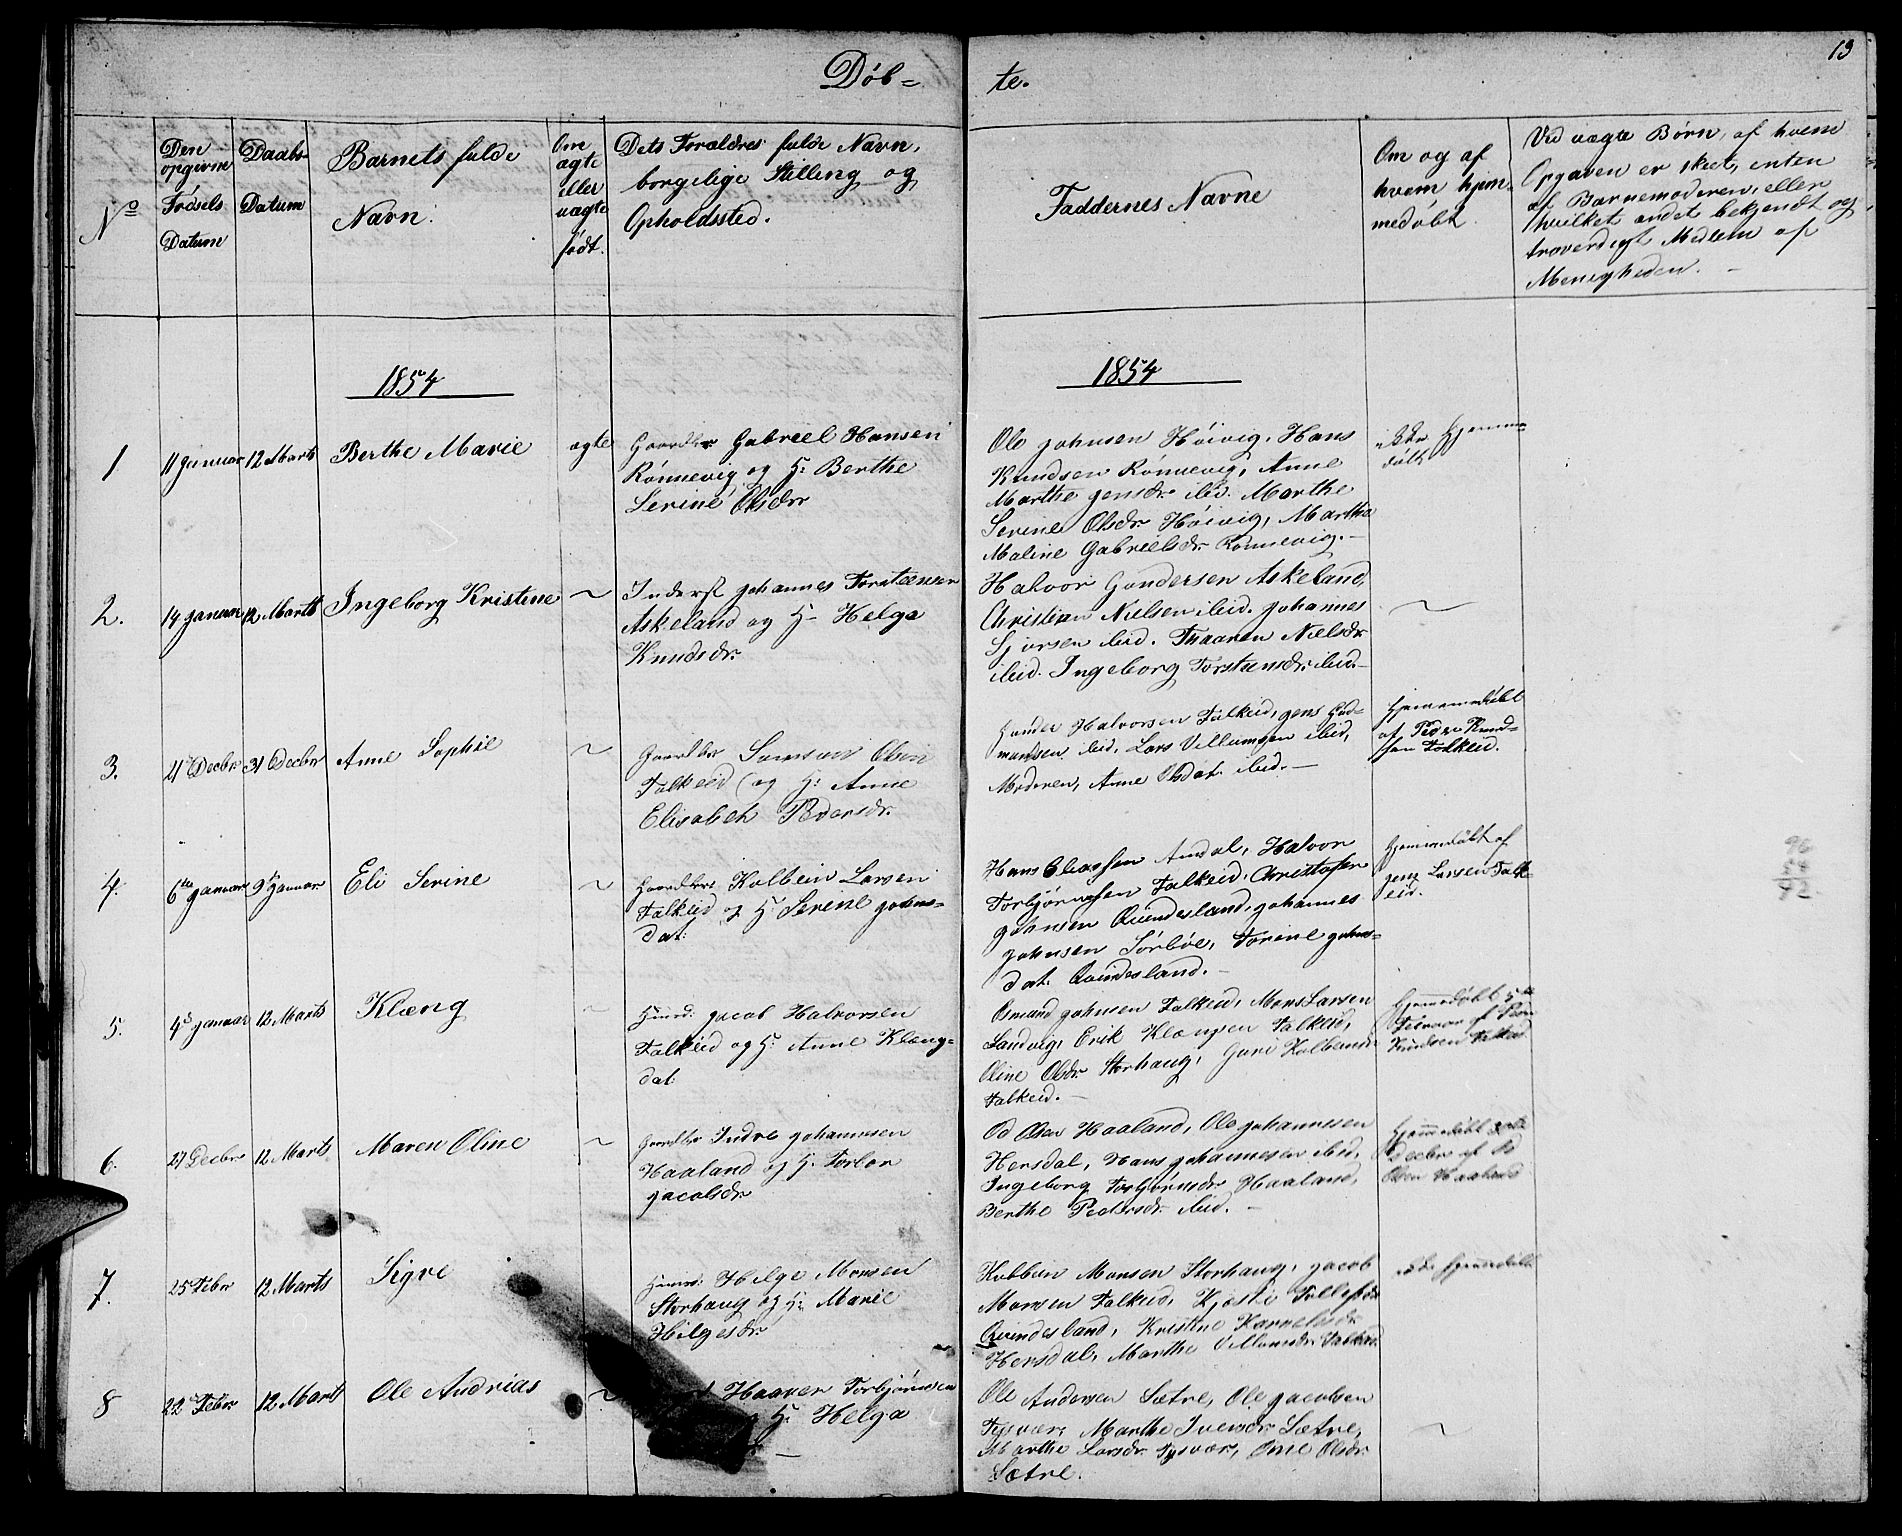 13
Døb=
te.
No
Den opgivne Fødsels Datum
Daabs- Datum
Barnets fulde Navn.
Om ægte eller uægte født.
Dets Forældres fulde Navn, borgelige Stilling og Opholdssted.
Faddernes Navne
Om og af hvem hjem- medøbt.
Ved uægte Børn, af hvem Opgaven er skeet, enten af Barnemoderen, eller hvilket andet bekjendt og troverdigt Medlem af Menigheden. -
1854
1854
1
11 Januar
12 Marts
Berthe Marie
ægte
Gaardbr Gabriel Hansen
Rønnevig og H: Berthe
Serine Olsdr
Ole Johnsen Høivig, Hans
Knudsen Rønnevig, Anne
Marthe Jensdr ibid. Marthe
Serine Olsdr Høivig, Martha
Maline Gabrielsdr. Rønnevig. -
ikke Hjemme-
døbt
2.
14 Januar
12 Marts
Ingeborg Kristine
~
Inderst Johannes Torsteensen
Askeland og H- Helga
Knudsdr.
Halvor Gundersen Askeland,
Christian Nielsen ibid. Johannes
Sjursen ibid. Maaren Nielsdr
ibid. Ingeborg Torsteensdr. ibid. -
~
3.
21 Decbr
31 Decbr
Anne Sophie
~
Gaardbr Samson Olsen
Falkeid og H: Anne
Elisabeth Pedersdr.
Halvorsen Falkeid, Jens Gud-
mundsen ibid, Lars Villumsen ibid,
Moderen, Anne Olsdat. ibid. -
Hjemmedøbt
af Peder Knud-
sen Falkeid.
4.
6te Januar
9de Januar
Eli Serine
~
Gaardbr Kolbein Larsen
Falkeid og H: Serene Johns-
dat:
Hans Amdal, Halvor
Torbjørnsen Falkeid, Christofer
Johnsen Qvindesland, Johannes
Johnsen Sørbøe, Torine Johns-
dat. Qvindesland. -
Hjemmedøbt af
Jens Larsen Falk-
eid.
96
54
42
5.
4de Januar
12 Marts
Klæng
~
Huusm: Jacob Halvorsen
Falkeid og H: Anne Klæng-
dat:
Osmund Johnsen Falkeid, Mons Larsen
Sandvig, Erik Klængsen Falkeid,
Oline Olsdr. Storhaug, Guri Kolbeinsdr
Falkeid. -
Hjemmedøbt 5te
Februar af Peder
Knudsen Falkeid
6.
27 Decbr
12 Marts
Maren Oline
~
Gaardbr Indre Johannesen
Haaland og H: Torbor
Jacobsdr
Od Olsen Haaland, Ole Johannessen
Hersdal, Hans Johannesen ibid,
Ingeborg Torbjørnsdr. Haaland,
Berthe Pedersdr. ibid. -
Hjemmedøbt
Decbr af Od
Olsen Haaland
7.
25 Febr
12 Marts
Sigve
Huusm: Helge Monsen
Storhaug og H: Marie
Helgesdr
Kolbein Monsen Storhaug, Jacob
Monsen Falkeid, Kjøsti Tollefsdr
Qvindesland, Kristine Karnelisdr
Hersdal, Marthe Villumsdr. Falkeid
ikke hjemmedøbt
8
22 Febr
12 Marts
Ole Andrias
~
Haaver Torbjørnsen
H: Helga
Ole Andersen Sætre, Ole Jacobsen
Tysvær, Marthe Iversdr Sætre,
Marthe Larsdr. Tysvær, Olsdr.
Sætre.
~